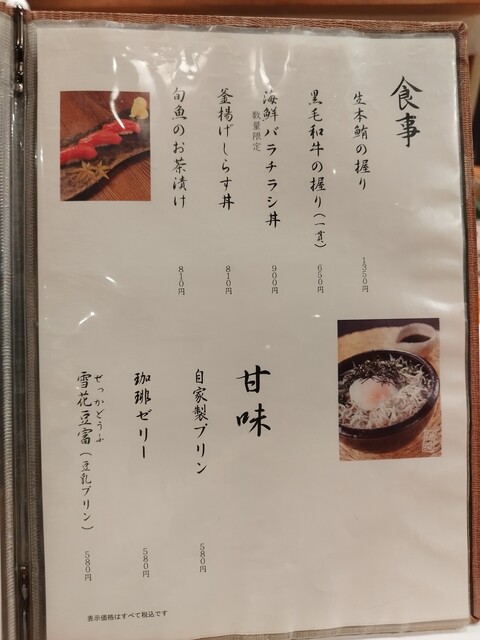 食事
生本鮪の握り
1350円
黒毛和牛の握り(一貫)
650円
海鮮バラチラシ丼
数量限定
900円
釜揚げしらす丼
810円
旬魚のお茶漬け
810円
甘味
自家製プリン
580円
珈琲ゼリー
580円
雪花豆富(豆乳プリン)
せっかどうふ
580円
表示価格はすべて税込です